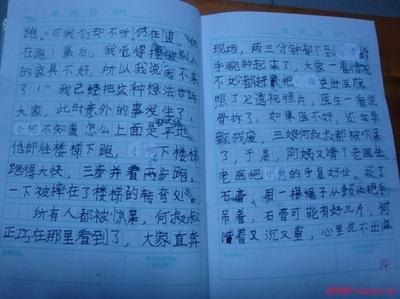 年 月 日 天气
跑。可我们却不听仍在追,仍
在跑!最后,我觉得撞破别人
的家具不好,所以我说我不来
了!"我已经把这种想法告诉
大家,此时意外的事发生了,
小何不知道怎么上面是平地,
他却往楼梯下跑,小何下楼梯
跑得大快,三步并着两步跑,一
一下被摔在了楼梯的转弯处。
所有人都被惊呆,何叔叔
正巧在那里看到了,大家直奔
现场,两三分钟都不到
手腕肿起来了,大家一看情况
不妙都好 把 医院
照了 透视照片,医生一看说
骨折了,如果医不好,还会导
致残废,三娘何叔叔都被吓呆
了,于是,阿姨又请了老医生
老医把小何的手复好位,敷了
石膏,用一根绳子从颈处把手
吊着,石膏可能有好几斤,何
着又沉又重,心里说不出
14